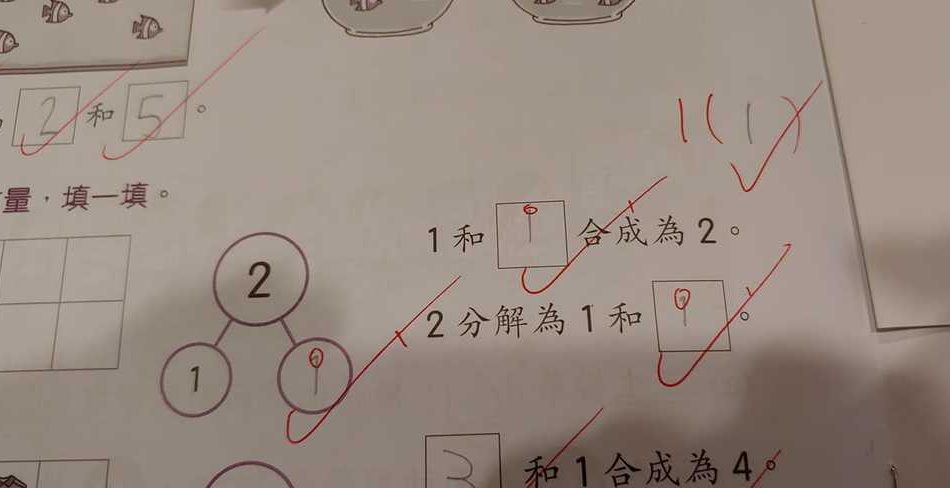 2 和 5。
量，填一填。
1(1)
1 和 1 合成為 2。
2
1 1
2 分解為 1 和 1。
3 和 1 合成為 4。